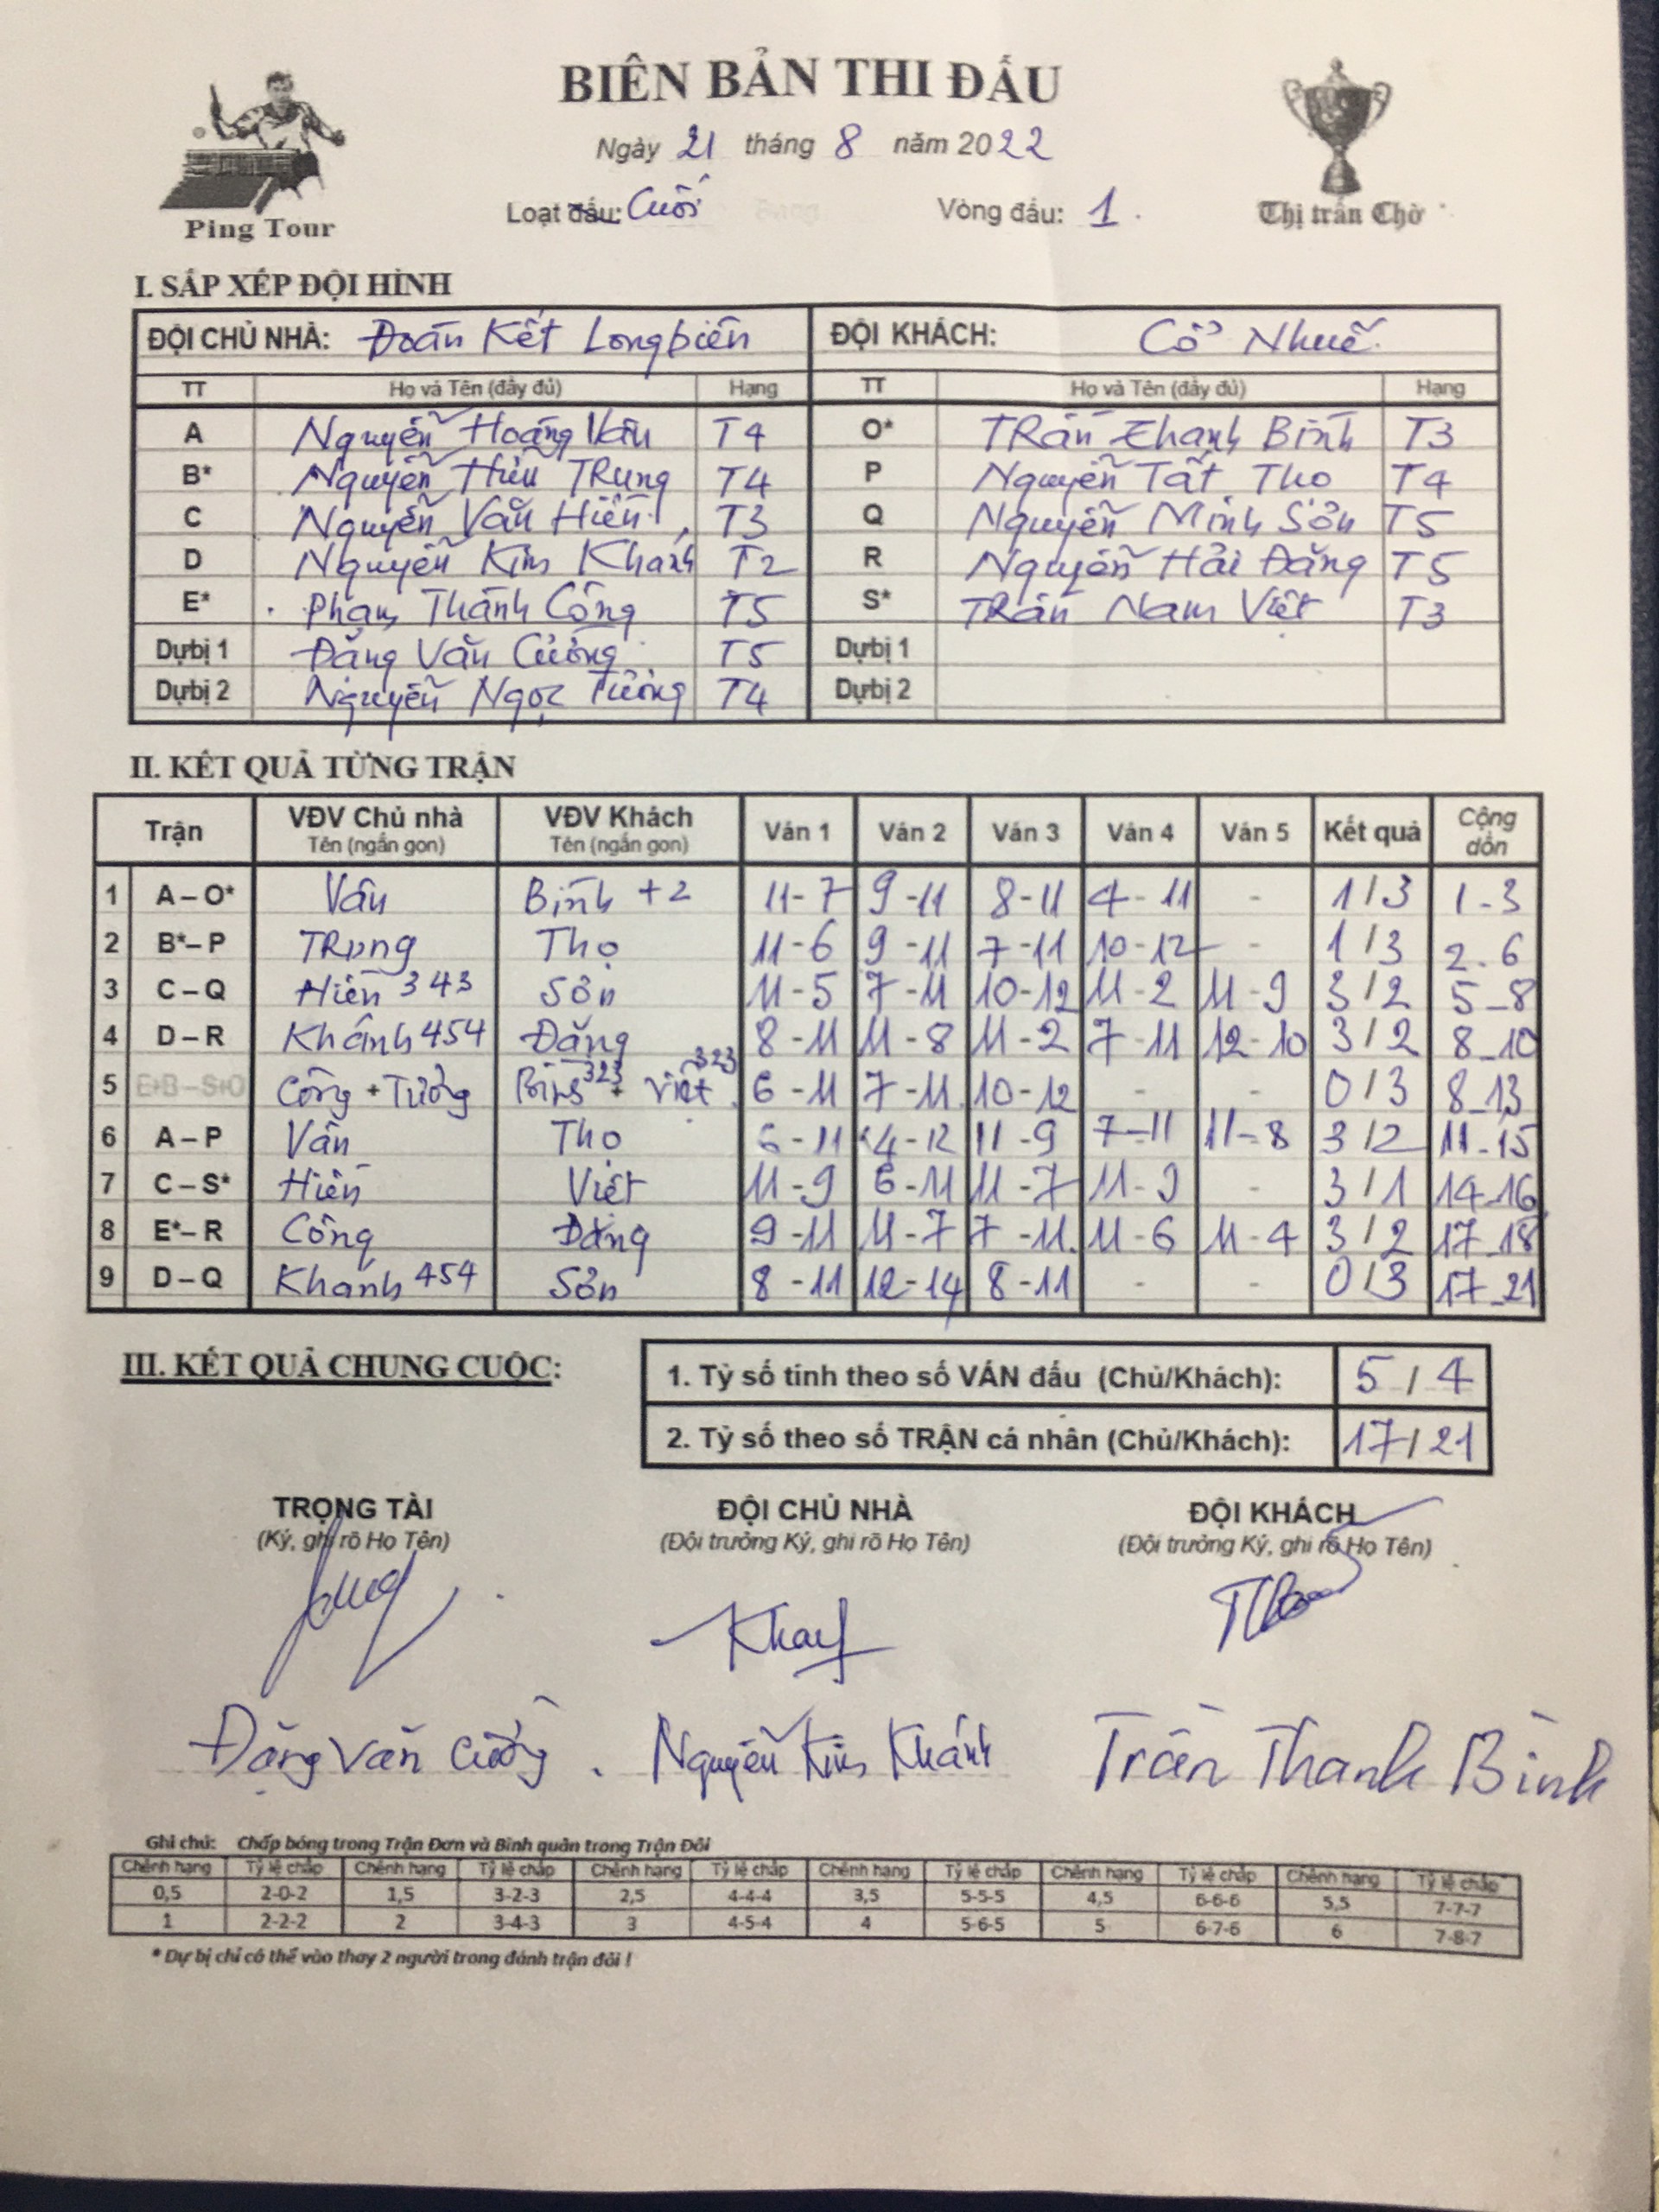 BIÊN BẢN THI ĐẤU
Ngày 21 tháng 8 năm 2022
Ping Tour
Loạt đấu: Cuối Vòng đấu: 1.
Thị trấn Chờ
I. SẮP XẾP ĐỘI HÌNH
ĐỘI CHỦ NHÀ: Đoàn Kết Longbiên ĐỘI KHÁCH: Cổ Nhuế
TT Họ và Tên (đầy đủ) Hạng TT Họ và Tên (đầy đủ) Hạng
A Nguyễn Hoàng Vân T4 O* TRần Thanh Bình T3
B* Nguyễn Hữu TRung T4 P Nguyễn Tất Thọ T4
C Nguyễn Văn Hiền T3 Q Nguyễn Minh Sơn T5
D Nguyễn Kim Khánh T2 R Nguyễn Hải Đăng T5
E* Phạm Thành Công T5 S* TRần Nam Việt T3
Dự bị 1 Đặng Văn Cường T5 Dự bị 1
Dự bị 2 Nguyễn Ngọc Tường T4 Dự bị 2
II. KẾT QUẢ TỪNG TRẬN
Trận VĐV Chủ nhà Tên (ngắn gọn) VĐV Khách Tên (ngắn gọn) Ván 1 Ván 2 Ván 3 Ván 4 Ván 5 Kết quả Cộng dồn
1 A – O* Vân Bình +2 11-7 9-11 8-11 4-11 - 1/3 1-3
2 B* – P TRung Thọ 11-6 9-11 7-11 10-12 - 1/3 2-6
3 C – Q Hiền 343 Sơn 11-5 7-11 10-12 11-2 11-9 3/2 5-8
4 D – R Khánh 454 Đăng 8-11 11-8 11-2 7-11 12-10 3/2 8-10
5 E+B – S+O Công + Tường Bình 323 + Việt 323 6-11 7-11 10-12 - - 0/3 8-13
6 A – P Vân Thọ 6-11 14-12 11-9 7-11 11-8 3/2 11-15
7 C – S* Hiền Việt 11-9 6-11 11-7 11-9 - 3/1 14-16
8 E* – R Công Đăng 9-11 11-7 7-11 11-6 11-4 3/2 17-18
9 D – Q Khánh 454 Sơn 8-11 12-14 8-11 - - 0/3 17-21
III. KẾT QUẢ CHUNG CUỘC:
1. Tỷ số tính theo số VÁN đấu (Chủ/Khách): 5/4
2. Tỷ số theo số TRẬN cá nhân (Chủ/Khách): 17/21
TRỌNG TÀI ĐỘI CHỦ NHÀ ĐỘI KHÁCH
(Ký, ghi rõ Họ Tên) (Đội trưởng Ký, ghi rõ Họ Tên) (Đội trưởng Ký, ghi rõ Họ Tên)
Đặng Văn Cường. Nguyễn Kim Khánh Trần Thanh Bình
Ghi chú: Chấp bóng trong Trận Đơn và Bình quân trong Trận Đôi
Chênh hạng Tỷ lệ chấp Chênh hạng Tỷ lệ chấp Chênh hạng Tỷ lệ chấp Chênh hạng Tỷ lệ chấp Chênh hạng Tỷ lệ chấp Chênh hạng Tỷ lệ chấp
0,5 2-0-2 1,5 3-2-3 2,5 4-4-4 3,5 5-5-5 4,5 6-6-6 5,5 7-7-7
1 2-2-2 2 3-4-3 3 4-5-4 4 5-6-5 5 6-7-6 6 7-8-7
* Dự bị chỉ có thể vào thay 2 người trong đánh trận đôi !